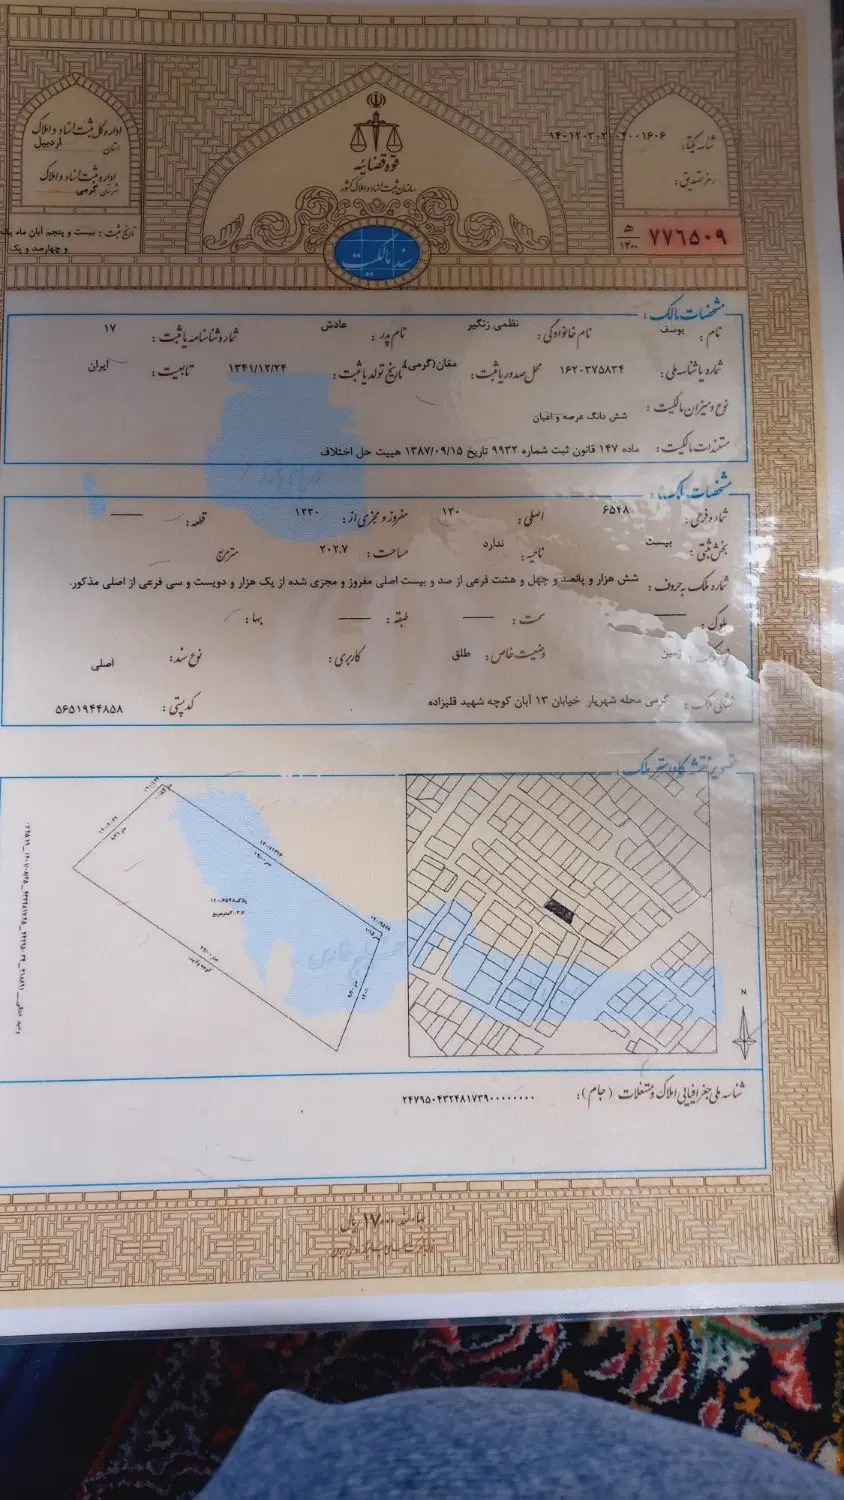 قوه قضائیه
سازمان ثبت اسناد و املاک کشور
سند مالکیت
شناسه یکتا: ۱۴۰۱۲۰۳۰۲۱۰۴۰۰۱۶۰۶
رمز تصدیق:
۷۷۶۵۰۹ ه‍ ۱۳۰۰
اداره کل ثبت اسناد و املاک
استان اردبیل
اداره ثبت اسناد و املاک
شهرستان گرمی
تاریخ ثبت: بیست و پنجم آبان ماه یک
و چهارصد و یک
مشخصات مالک:
نام: یوسف نام خانوادگی: نظمی زنگیر نام پدر: عادش شماره شناسنامه یا ثبت: ۱۷
شماره یا شناسه ملی: ۱۶۲۰۳۷۵۸۳۴ محل صدور یا ثبت: مغان(گرمی) تاریخ تولد یا ثبت: ۱۳۴۱/۱۲/۲۴ تابعیت: ایران
نوع و میزان مالکیت: شش دانگ عرصه و اعیان
مستندات مالکیت: ماده ۱۴۷ قانون ثبت شماره ۹۹۳۲ تاریخ ۱۳۸۷/۰۹/۱۵ هییت حل اختلاف
مشخصات ملک:
شماره فرعی: ۶۵۴۸ اصلی: ۱۲۰ مفروز و مجزی از: ۱۲۳۰ قطعه:
بخش ثبتی: بیست ناحیه: ندارد مساحت: ۲۰۲.۷ متر مربع
شماره ملک به حروف: شش هزار و پانصد و چهل و هشت فرعی از صد و بیست اصلی مفروز و مجزی شده از یک هزار و دویست و سی فرعی از اصلی مذکور.
بلوک: سمت: طبقه: بها:
زمین وضعیت خاص: طلق کاربری: نوع سند: اصلی
نشانی ملک: گرمی محله شهریار خیابان ۱۳ آبان کوچه شهید قلیزاده کد پستی: ۵۶۵۱۹۴۴۸۵۸
تصویر نقشه کاداستر ملک:
پلاک ۱۲۰/۶۵۴۸
N
شناسه ملی جغرافیایی املاک و مستغلات (جام): ۲۴۷۹۵۰۴۳۲۴۸۱۷۳۹۰۰۰۰۰۰۰۰